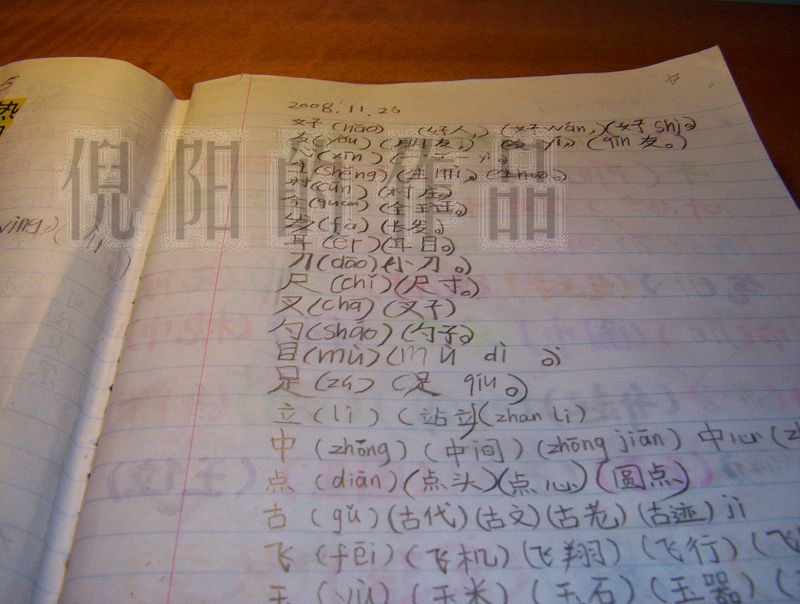 5
热
ying。)(
2008.11.26
好(hǎo) (好人,) (女子nán,)(女子shì。)
友(yǒu) (朋友,) (友yì。)(qīn友。)
心(xīn)
生(shēng)(生
村(cūn)(村
全(quán)(全
发(fà)(长发。)
耳(ěr)(耳目。)
刀(dāo)(小刀。)
尺(chǐ)(尺寸。)
叉(chā)(叉子)
勺(sháo)(勺子。)
目(mù)(mù dì。)
足(zú)(足qiú。)
立(lì)(站立)(zhan li)
中(zhōng)(中间)(zhōng jiān)中心(zh
点(diǎn)(点头)(点心)(圆点)
古(gǔ)(古代)(古文)(古老)(古迹)ji
飞(fēi)(飞机)(飞翔)(飞行)(飞
玉(yù)(玉米)(玉石)(玉器)(
倪阳的作品